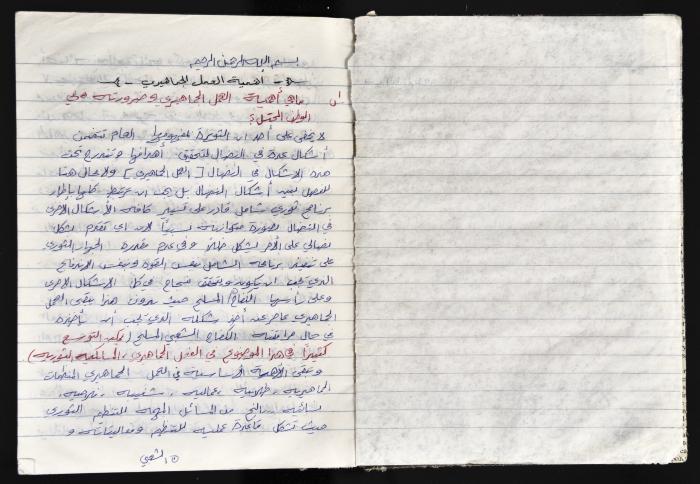 بسم الله الرحمن الرحيم
- أهمية العمل الجماهيري -
س ماهي أهمية العمل الجماهيري وضرورته في
الوطن المحتل؟
لا يخفى على أحد ان الثورة بمفهومها العام تتضمن
أشكال عدة في النضال لتحقيق أهدافها وتندرج تحت
هذه الاشكال في النضال [العمل الجماهيري] ولا مجال هنا
للفصل بين أشكال النضال بل يجب ان ترتبط كلها بإطار
برنامج ثوري شامل قادر على تسيير كافة الأشكال الأخرى
في النضال بصورة متوازنة نسبياً لا ان اي تقدم لشكل
نضالي على الآخر بشكل وفي عدم مقدرة الثوري
على تنفيذ برنامجه الشامل بنفس القوة وبنفس الاندفاع
الذي يجب ان يكون ويتحقق بنجاح في كل الاشكال الأخرى
وعلى رأسها الكفاح المسلح حيث بدون هذا يبقى العمل
الجماهيري عاجز عن أخذ شكله الذي يجب أن يأخذه
في حال مرافقته الكفاح الشعبي المسلح (يمكن التوسع
كثيراً في هذا الموضوع في العمل الجماهيري، المسلكية الثورية)
وتبقى الأهمية الأساسية في العمل الجماهيري المنظمات
الجماهيرية، طلابية، عمالية، شبيبية،
نسائية، الخ من المسائل المهمة للتنظيم الثوري
حيث تشكل قاعدة عملية للتنظيم وفعالياته و
الشعبي